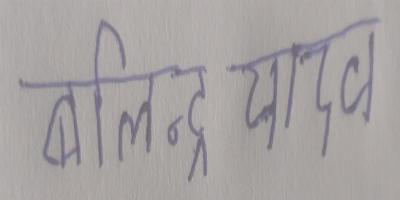 बलिन्द्र यादव